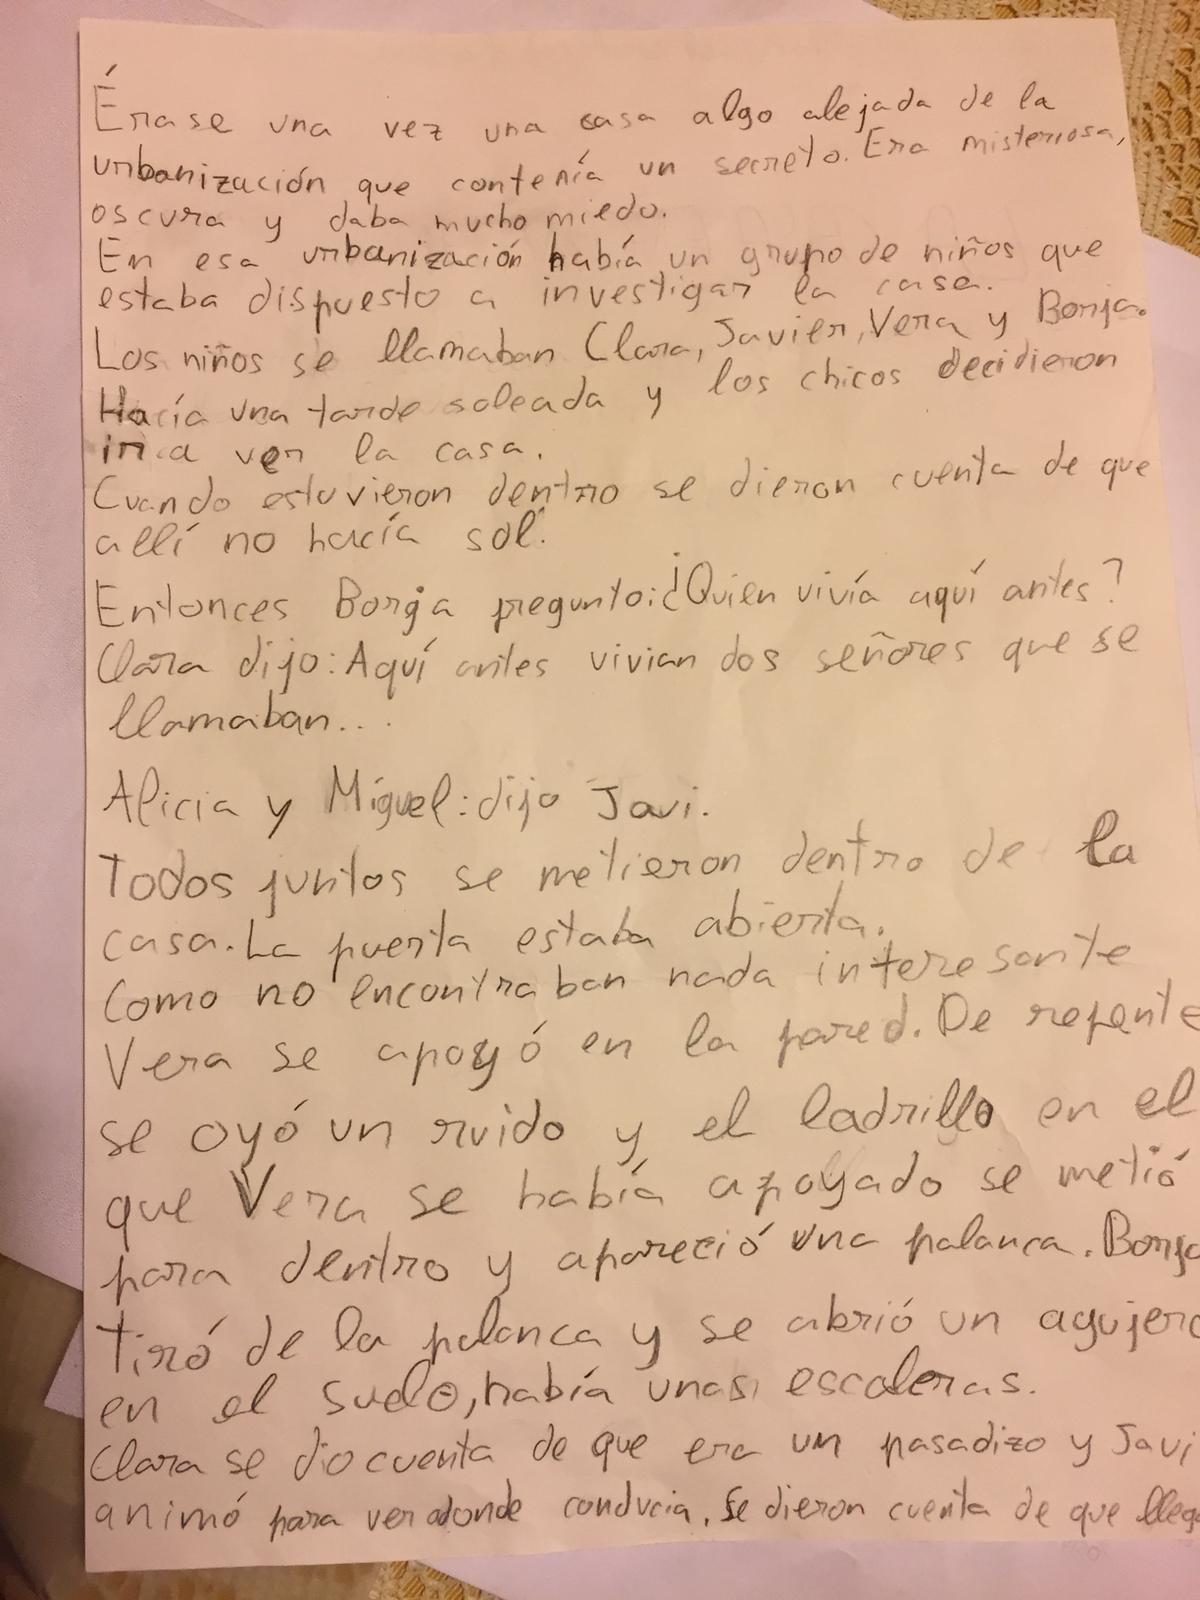 Érase una vez una casa algo alejada de la
urbanización que contenía un secreto. Era misteriosa,
oscura y daba mucho miedo.
En esa urbanización había un grupo de niños que
estaba dispuesto a investigar la casa.
Los niños se llamaban Clara, Javier, Vera y Borja.
Hacía una tarde soleada y los chicos decidieron
ir a ver la casa.
Cuando estuvieron dentro se dieron cuenta de que
allí no hacía sol.
Entonces Borja pregunto: ¿Quien vivía aquí antes?
Clara dijo: Aquí antes vivian dos señores que se
llamaban...
Alicia y Miguel: dijo Javi.
Todos juntos se metieron dentro de la
casa. La puerta estaba abierta.
Como no encontraban nada interesante
Vera se apoyó en la pared. De repente
se oyó un ruido y el ladrillo en el
que Vera se había apoyado se metió
para dentro y apareció una palanca. Borja
tiró de la palanca y se abrió un agujero
en el suelo, había unas escaleras.
Clara se dio cuenta de que era un pasadizo y Javi
animó para ver adonde conducia. Se dieron cuenta de que llega